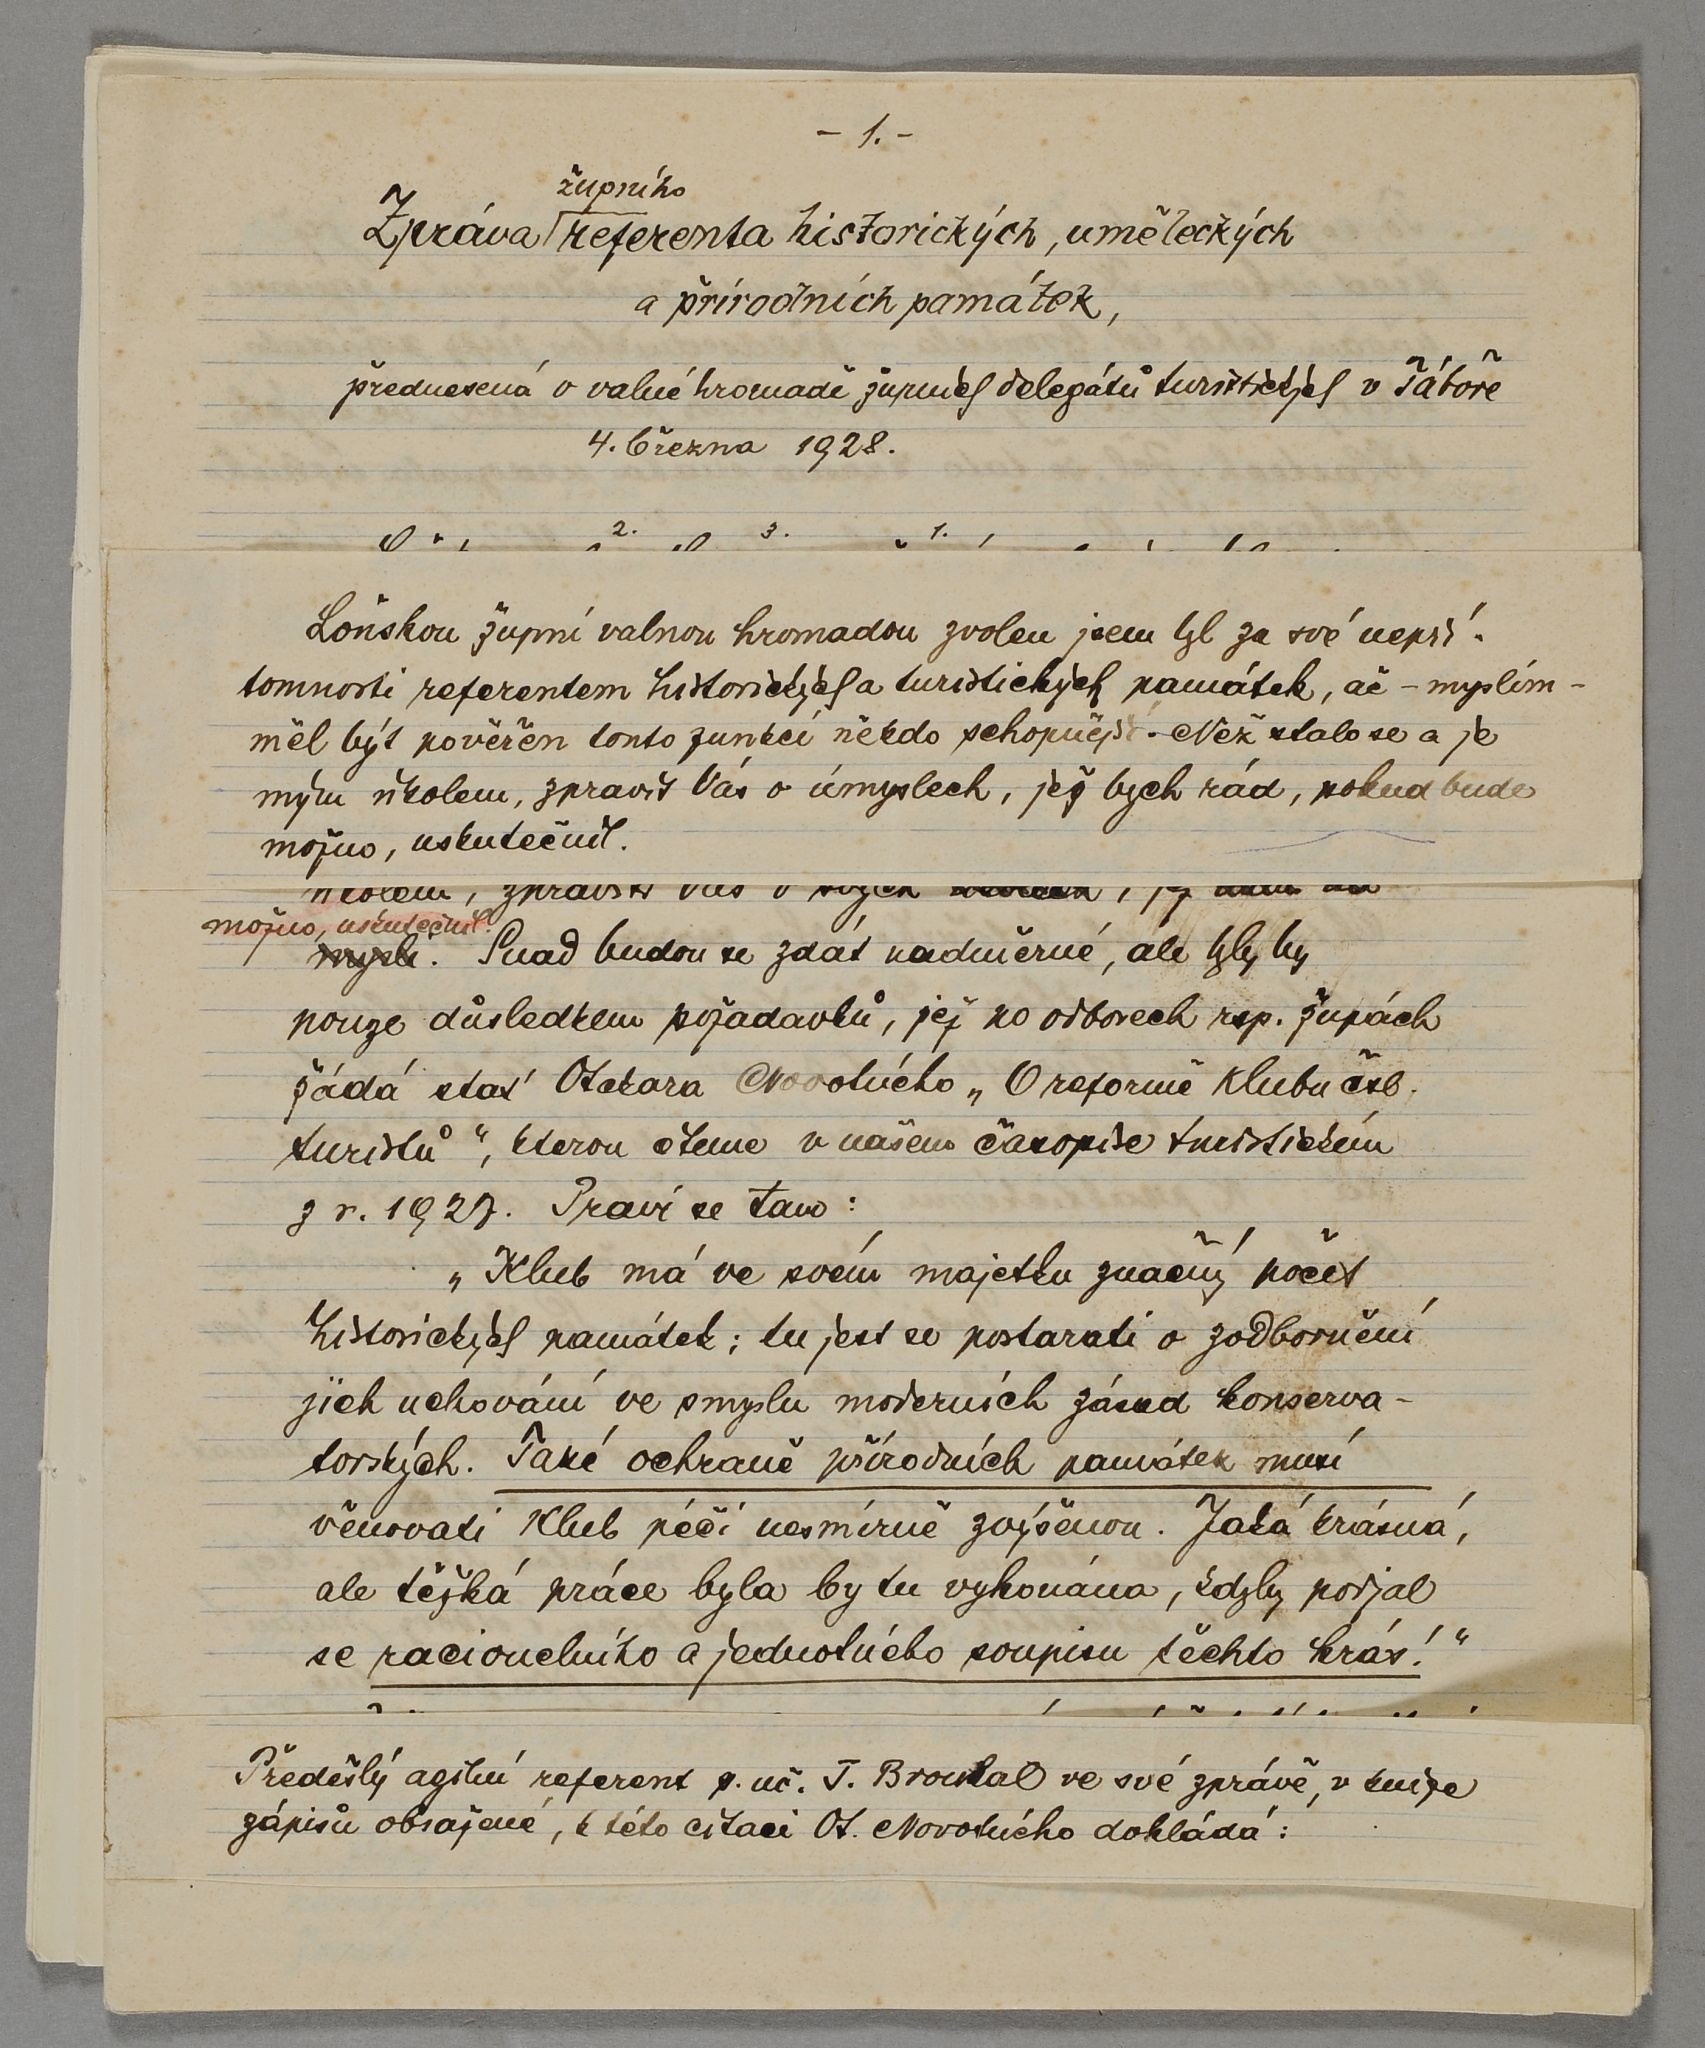 - 1. -
župního
Zpráva referenta historických, uměleckých
a přírodních památek,
přednesená o valné hromadě župních delegátů turistických v Táboře
4. března 1928.
2. 3. 1.
Loňskou župní valnou hromadou zvolen jsem byl za své nepří-
tomnosti referentem historických a turistických památek, ač - myslím -
měl být pověřen touto funkcí někdo schopnější. Než stalo se a je
mým úkolem, zpravit Vás o úmyslech, jež bych rád, pokud bude
možno, uskutečnil.
úkolem, zpraviti Vás o svých , jež
možno, uskutečnil.
mysli. Snad budou se zdát nadměrné, ale byly by
pouze důsledkem požadavků, jež po odborech resp. župách
žádá stať Otakara Novotného „O reformě Klubu čsl.
turistů“, kterou čteme v našem časopise turistickém
z r. 1927. Praví se tam:
„Klub má ve svém majetku značný počet
historických památek; tu jest se postarati o zodbornění
jich uchování ve smyslu moderních zásad konserva-
torských. Také ochraně přírodních památek musí
věnovati Klub péči nesmírně zvýšenou. Jaká krásná,
ale těžká práce byla by tu vykonána, kdyby podjal
se racionelního a jednotného soupisu těchto krás!“
Předešlý agilní referent p. uč. T. Broukal ve své zprávě, v knize
zápisů obsažené, k této citaci Ot. Novotného dokládá: